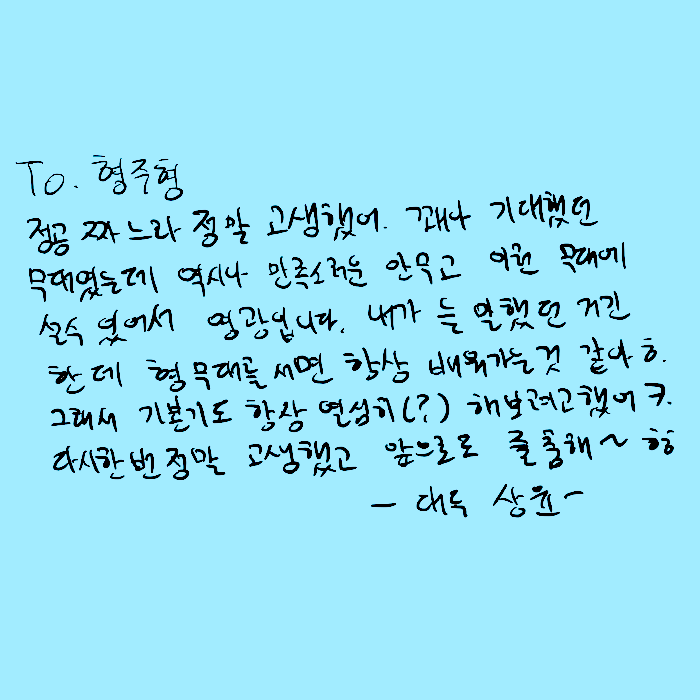 To. 형주형
정공 짜느라 정말 고생했어. 꽤나 기대했던
무대였는데 역시나 만족스러운 안무고 이런 무대에
설수 있어서 영광입니다. 내가 늘 말했던 거긴
한데 형무대를 서면 항상 배워가는것 같아ㅎ.
그래서 기본기도 항상 열심히(?) 해보려고했어ㅋ.
다시한번 정말 고생했고 앞으로도 즐춤해~ 형
- 대두 상윤-